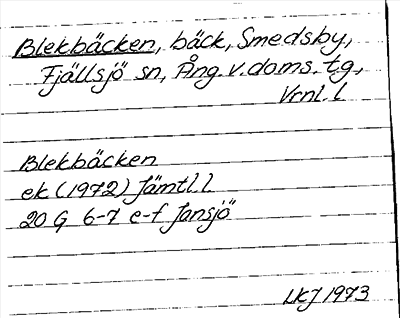 Blekbäcken, bäck, Smedsby,
Fjällsjö sn, Ång. v. doms. tg,
Vrnl. l
Blekbäcken
ek (1972) Jämtl. l
20 G 6-7 e-f Jansjö
LKJ 1973